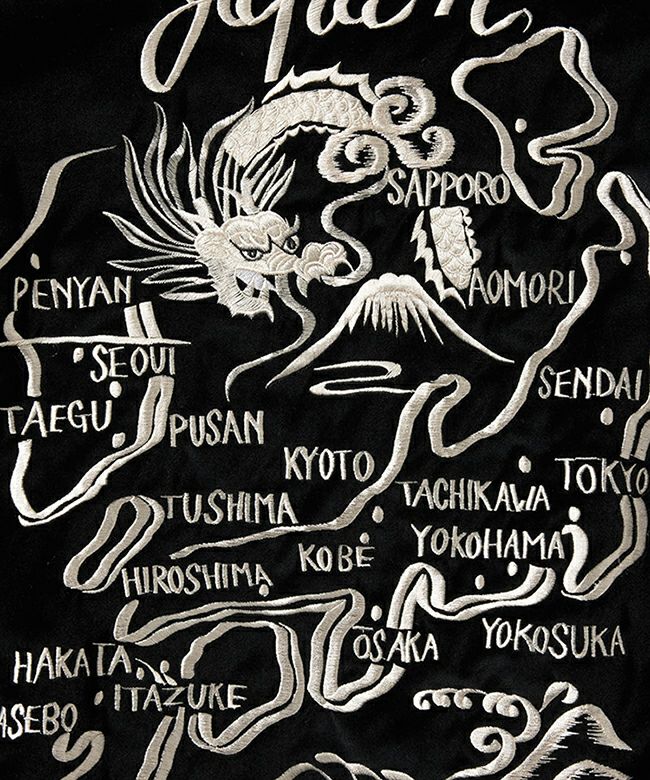 Japan
SAPPORO
PENYAN
AOMORI
SEOUI
SENDAI
TAEGU
PUSAN
KYOTO
TOKYO
TACHIKAWA
TUSHIMA
KOBE
YOKOHAMA
HIROSHIMA
OSAKA
YOKOSUKA
HAKATA
ITAZUKE
ASEBO